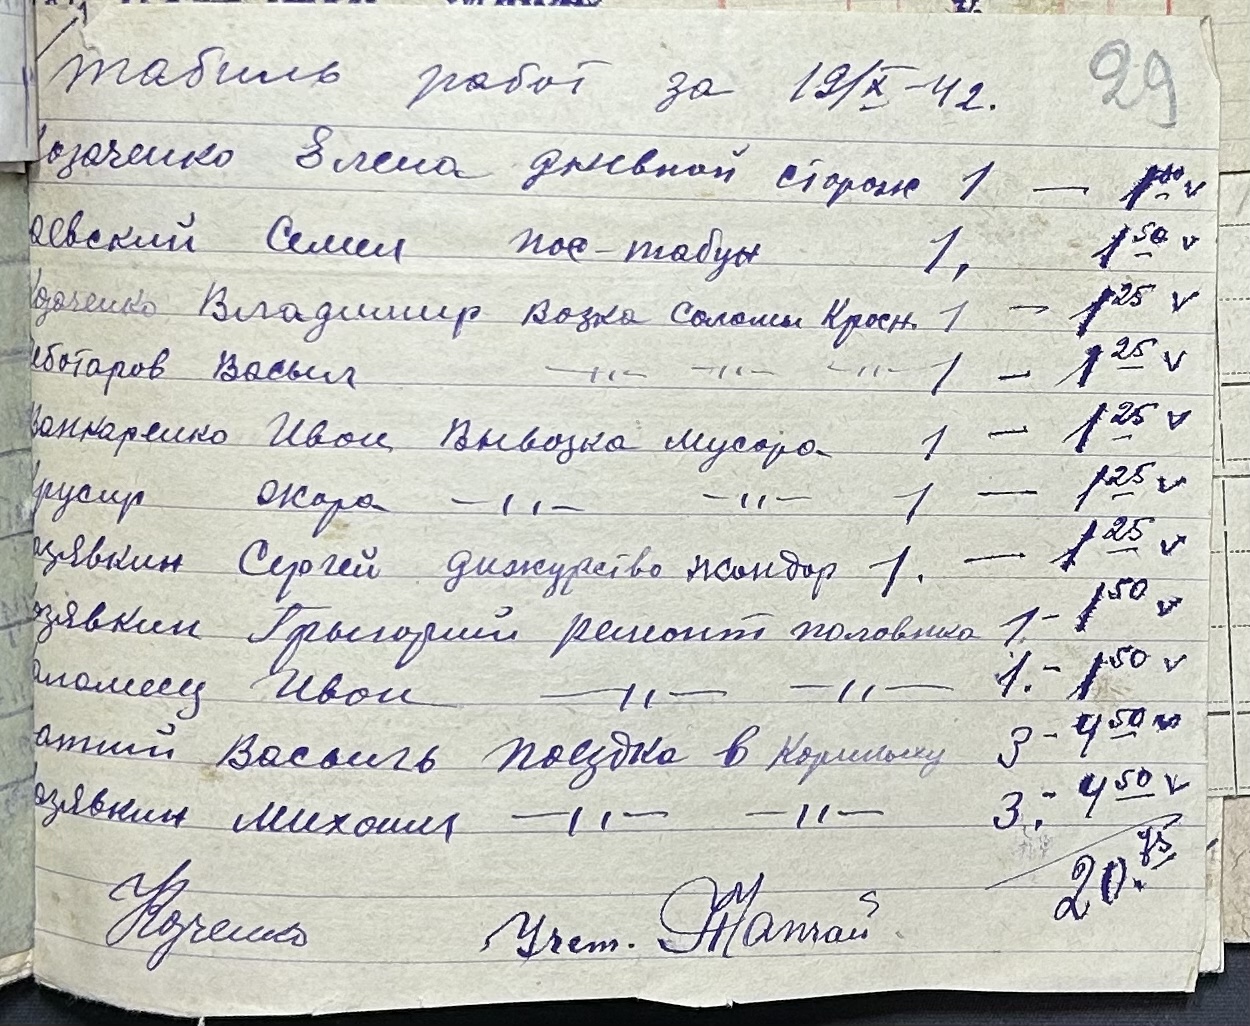 29
табиль работ за 19/X-42.
озаченко Елена дневной сторож 1 — 1 00 v
аевский Семен пос-табун 1, 1 50 v
озаченко Владимир возка соломы Красн. 1 — 1 25 v
еботаров Васыл —"— —"— —"— 1 — 1 25 v
Ванкаренко Иван Вывозка мусора 1 — 1 25 v
русир —"— —"— 1 — 1 25 v
озявкин Сергей дижурство жандар 1. — 1 25 v
озявкин Грыгорий ремонт половнка 1,- 1 50 v
апомец Иван —"— —"— 1.- 1 50 v
атий Васыль поездка в 3 - 4 50 v
озявкин Михаил —"— —"— 3.- 4 50 v
20. 75
Учет.